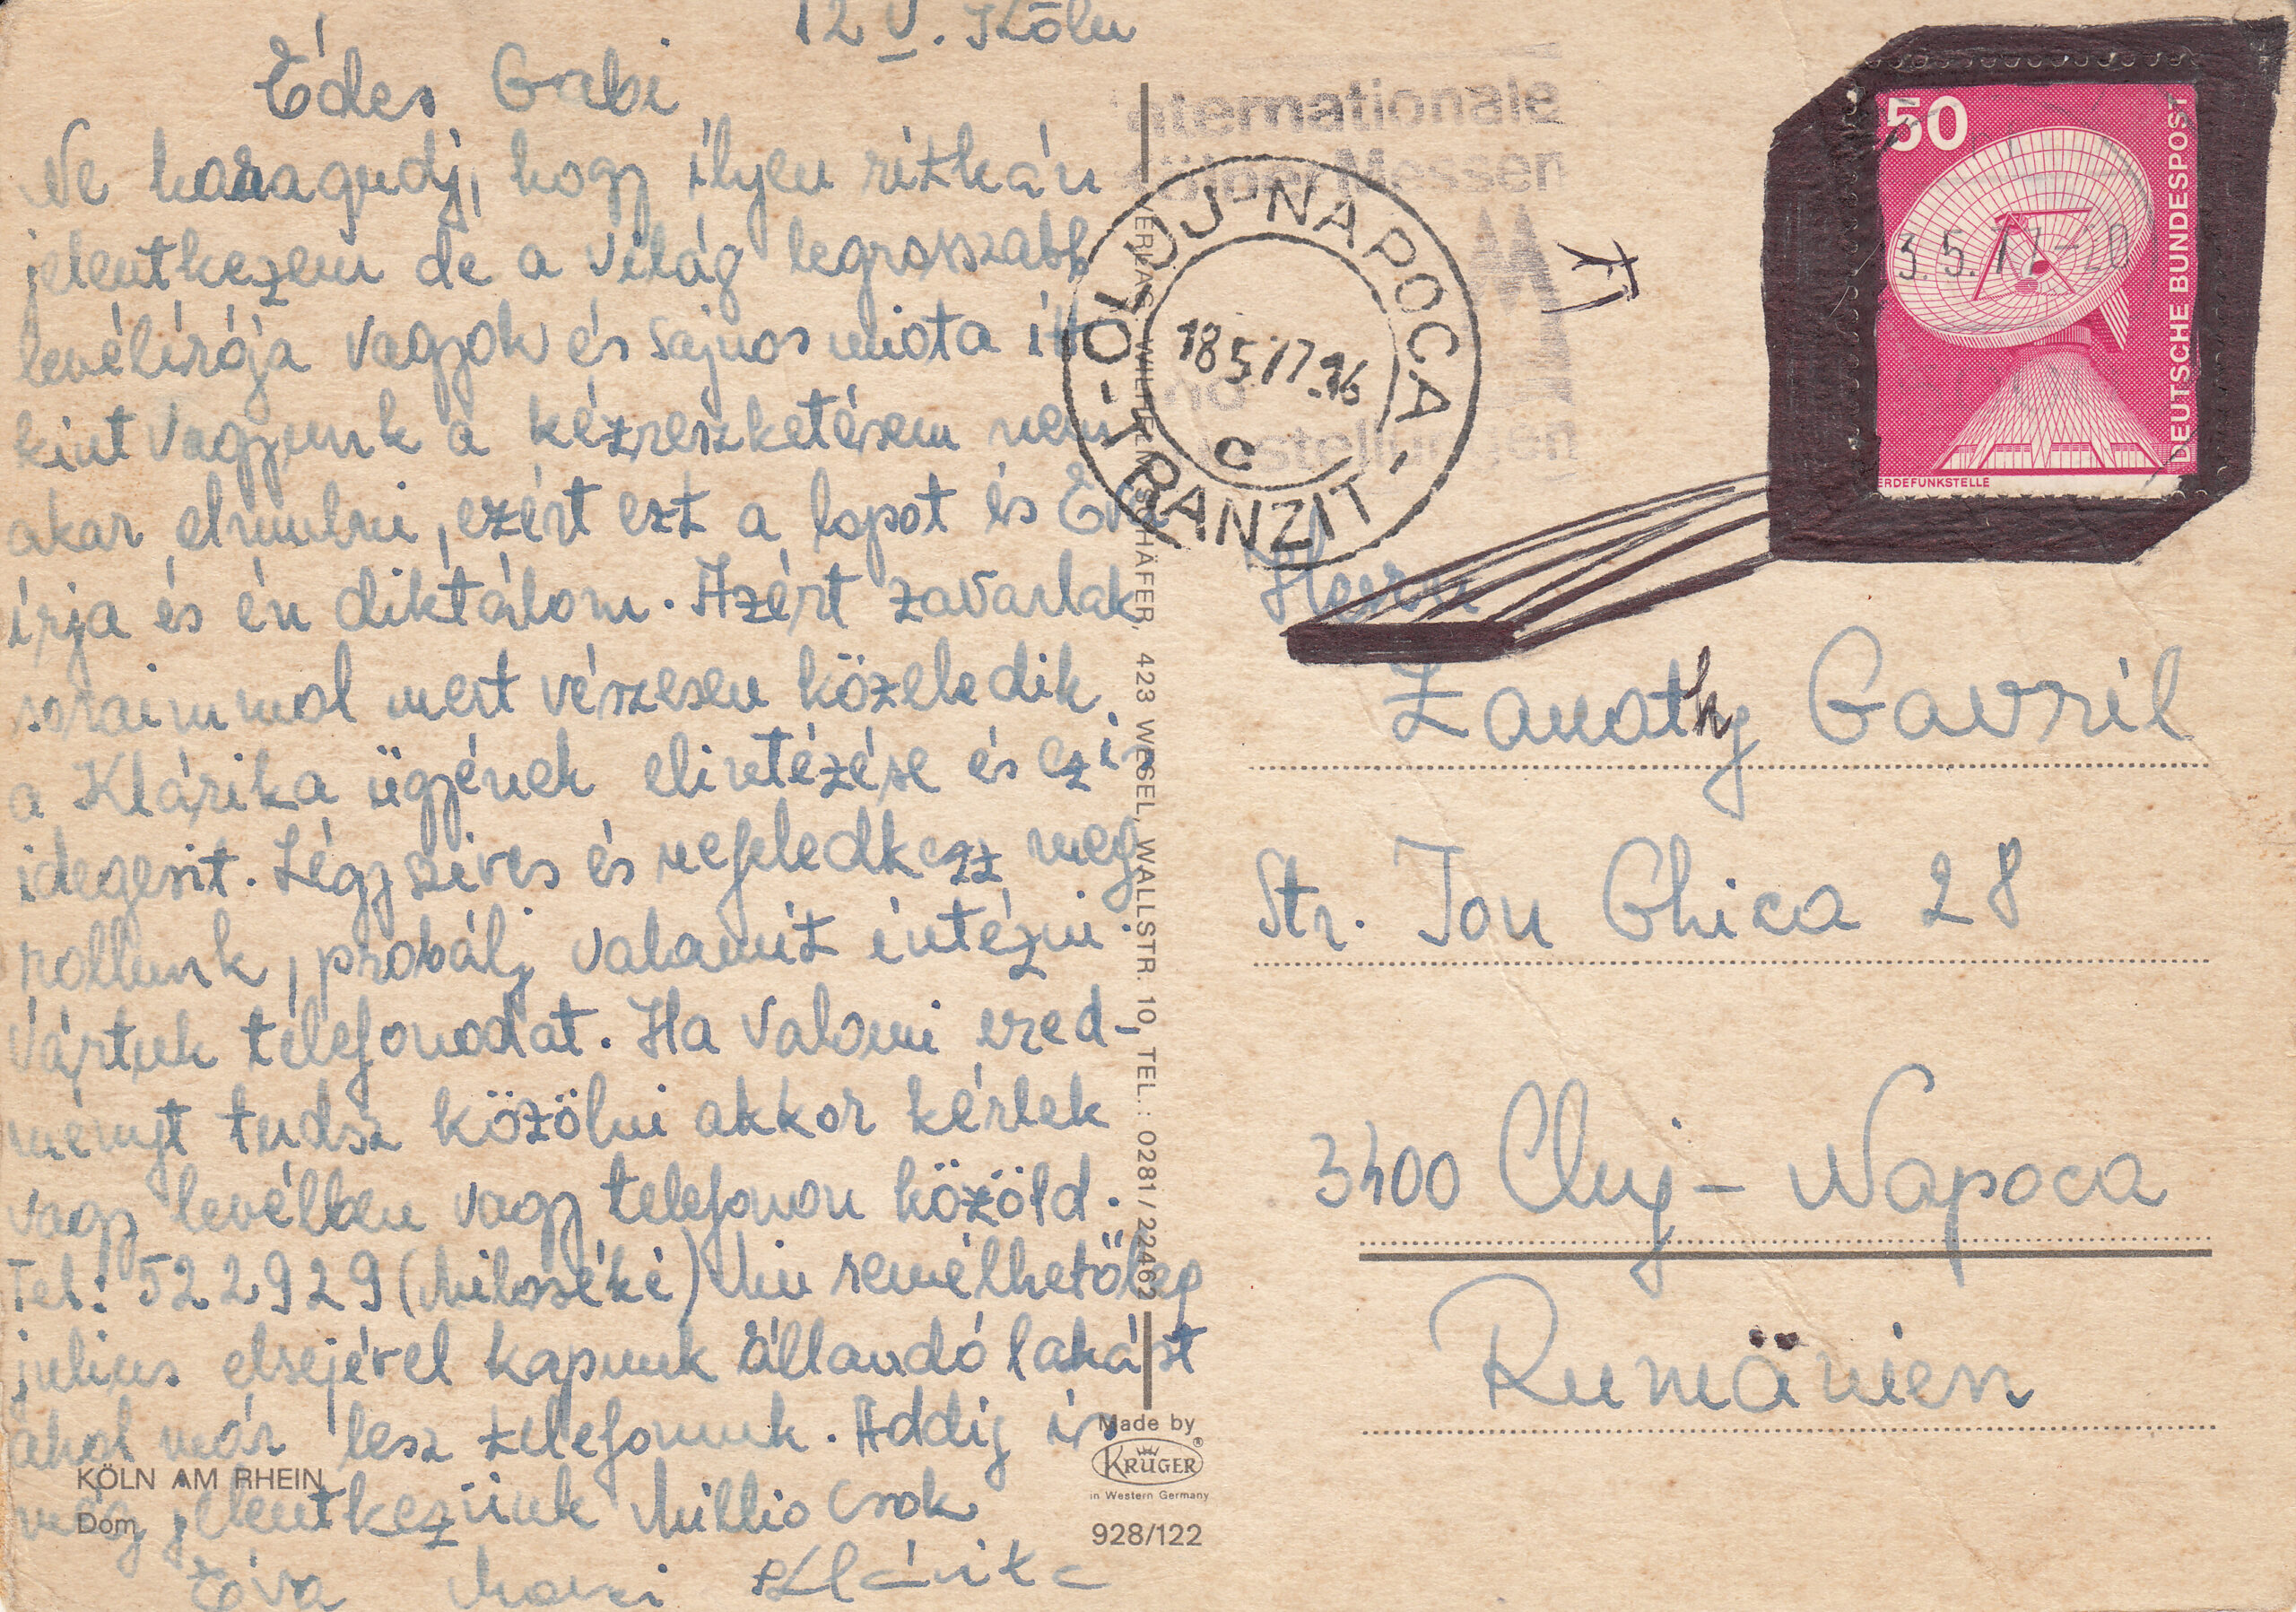 12 V. Köln
Édes Gabi
Ne haragudj, hogy ilyen ritkán
jelentkezem de a világ legrosszabb
levélírója vagyok és sajnos miota itt
kint vagyunk a kézreszketésem nem
akar elmulni, ezért ezt a lapot is Éva
írja és én diktálom. Azért zavarlak
soraimmal mert vészesen közeledik
a Klárika ügyének elintézése és ez
idegesit. Légy szives és nefeledkezz meg
rollunk, probálj valamit intézni.
Vártuk telefonodat. Ha valami ered-
ményt tudsz közölni akkor kérlek
vagy levélben vagy telefonon közöld.
Tel: 522929 (Miloséké) Mi remélhetőleg
julius elsejével kapunk állandó lakást
ahol már lesz telefonunk. Addig is
még jelentkezünk Millio csok
Éva Klárika
KÖLN AM RHEIN
Dom
VERLAG: WILHELM SCHÄFER, 423 WESEL, WALLSTR. 10, TEL.: 0281/22462
Made by
KRÜGER®
in Western Germany
928/122
Internationale
Kölner Messen
und
Ausstellungen
CLUJ-NAPOCA
18 5 77.16
C
TRANZIT
50
DEUTSCHE BUNDESPOST
ERDEFUNKSTELLE
3.5.77-20
Herrn
Zanathy Gavril
Str. Ion Ghica 28
3400 Cluj-Napoca
Rumänien